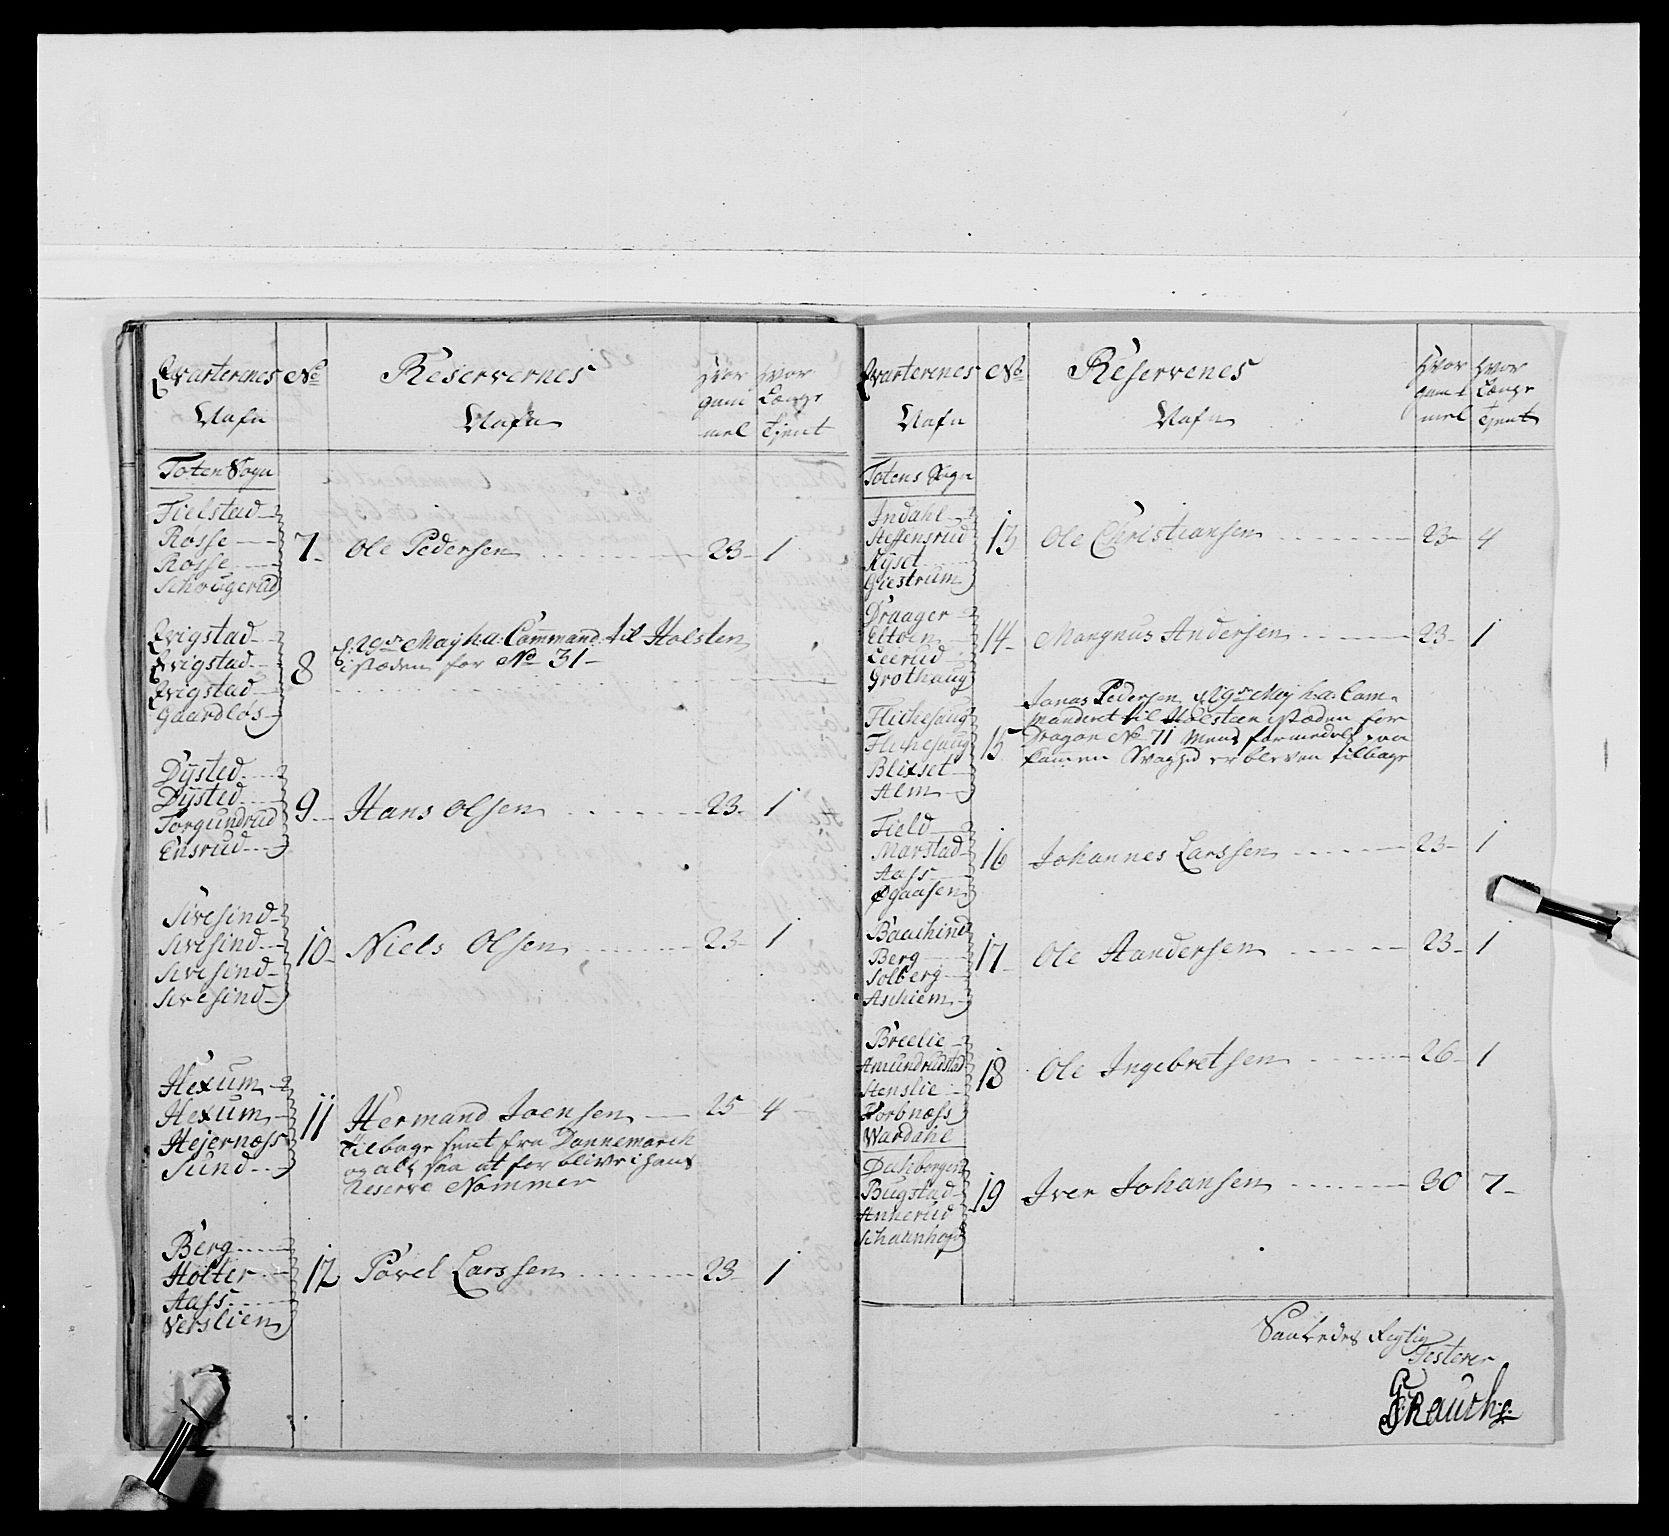 Qvarterenes No Reservernes Hvor hvor
Nafn Nafn gam Længe
mel Tjent
Toten Sogn
Fielstad
Rosse
Rosse
Schougerud
7 Ole Pedersen 23 1
Qvigstad
Qvigstad
Qvigstad
Gaardlos
8 d: 29de Maij ha: Command: til Holsten
istæden for No 31
Dÿsted
Dÿsted
Torgundrud
Ensrud
9 Hans Olsen 23 1
Sivesind
Sivesind
Sivesind
Sivesind
10 Niels Olsen 23 1
Hexum
Hexum
Hejernæss
Sund
11 Hermand Joensen 25 4
tilbage sent fra Dannemarch
og alt saa at for blive i hans
Reserve Nommer
Berg
Holter
Aass
Verslien
12 Povel Larssen 23 1
Qvarterenes No Reservenes Hvor hvor
Nafn Nafn gam Længe
mel Tjent
Totens Sogn
Indahl
Steffensrud
Kÿset
Giestrum
13 Ole Christiansen 23 4
Draager
Eltoen
Leerud
Grothaug
14 Mangnus Andersen 23 1
Flichesaug
Flichesaug
Blixset
Alm
15 Jonas Pedersen d 29de Maij ha: Com-
manderet til Holsteen istæden for
Dragon No 71 mens formedelst
kommen Svaghd er bleven tilbage
Field
Marstad
Aass
Øgaasen
16 Johannes Larssen 23 1
Baachind
Berg
Solberg
Aschiem
17 Ole Aandersen 23 1
Breelie
Amundrudstad
Stenslie
Korbnæss
Wardahl
18 Ole Ingebretsen 26 1
Dahborgen
Bugstad
Ankerud
19 Iver Johansen 30 7
Saaledes Rigtig
Testerer
GRauch